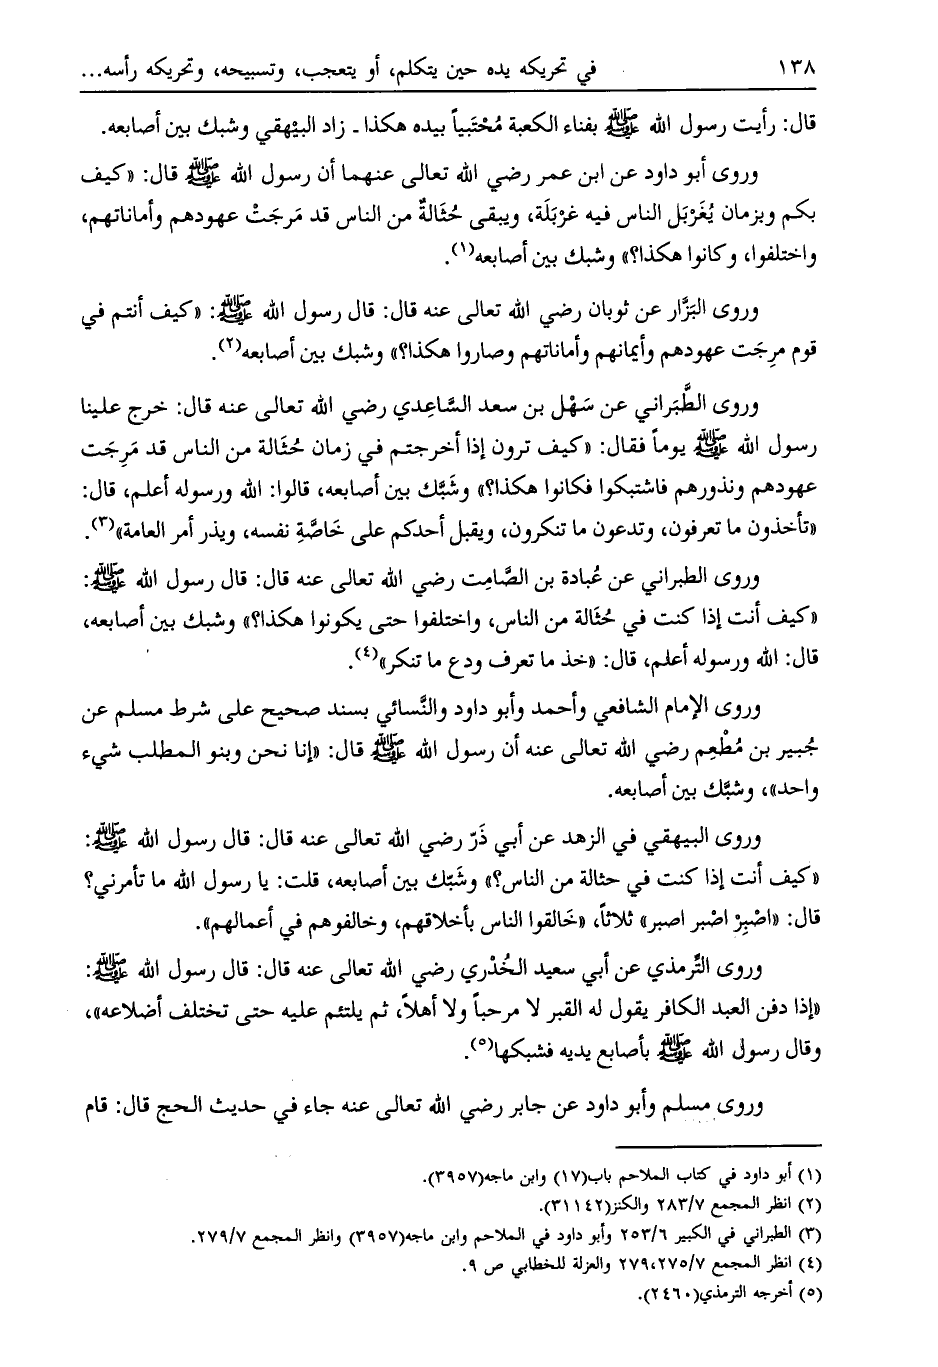 ١٣٨ في تحريكه يده حين يتكلم، أو يتعجب، وتسبيحه، وتحريكه رأسه...
قال: رأيت رسول الله ﷺ بفناء الكعبة مُحْتَبياً بيده هكذا ـ زاد البيْهقي وشبك بين أصابعه.
وروى أبو داود عن ابن عمر رضي الله تعالى عنهما أن رسول الله ﷺ قال: «كيف
بكم وبزمان يُغَرْبَل الناس فيه غرْبَلَة، ويبقى حُثَالةٌ من الناس قد مَرجَتْ عهودهم وأماناتهم،
واختلفوا، وكانوا هكذا؟» وشبك بين أصابعه(١).
وروى البَزَّار عن ثوبان رضي الله تعالى عنه قال: قال رسول الله ﷺ: «كيف أنتم في
قوم مرِجَت عهودهم وأيمانهم وأماناتهم وصاروا هكذا؟» وشبك بين أصابعه(٢).
وروى الطَّبَراني عن سَهْل بن سعد السَّاعِدي رضي الله تعالى عنه قال: خرج علينا
رسول الله ﷺ يوماً فقال: «كيف ترون إذا أخرجتم في زمان حُثَالة من الناس قد مَرِجَت
عهودهم ونذورهم فاشتبكوا فكانوا هكذا؟» وشَبَّك بين أصابعه، قالوا: الله ورسوله أعلم، قال:
«تأخذون ما تعرفون، وتدعون ما تنكرون، ويقبل أحدكم على خَاصَّةِ نفسه، ويذر أمر العامة»(٣).
وروى الطبراني عن عُبادة بن الصَّامِت رضي الله تعالى عنه قال: قال رسول الله ﷺ:
«كيف أنت إذا كنت في حُثَالة من الناس، واختلفوا حتى يكونوا هكذا؟» وشبك بين أصابعه،
قال: الله ورسوله أعلم، قال: «خذ ما تعرف ودع ما تنكر»(٤).
وروى الإمام الشافعي وأحمد وأبو داود والنَّسائي بسند صحيح على شرط مسلم عن
جُبير بن مُطْعِم رضي الله تعالى عنه أن رسول الله ﷺ قال: «إنا نحن وبنو المطلب شيء
واحد»، وشبَّك بين أصابعه.
وروى البيهقي في الزهد عن أبي ذَرّ رضي الله تعالى عنه قال: قال رسول الله ﷺ:
«كيف أنت إذا كنت في حثالة من الناس؟» وشَبّك بين أصابعه، قلت: يا رسول الله ما تأمرني؟
قال: «اصْبِرْ اصْبر اصبر» ثلاثاً، «خَالقوا الناس بأخلاقهم، وخالفوهم في أعمالهم».
وروى التِّرمذي عن أبي سعيد الخُدْري رضي الله تعالى عنه قال: قال رسول الله ﷺ:
«إذا دفن العبد الكافر يقول له القبر لا مرحباً ولا أهلاً، ثم يلتئم عليه حتى تختلف أضلاعه»،
وقال رسول الله ﷺ بأصابع يديه فشبكها(٥).
وروى مسلم وأبو داود عن جابر رضي الله تعالى عنه جاء في حديث الحج قال: قام
(١) أبو داود في كتاب الملاحم باب(١٧) وابن ماجه(٣٩٥٧).
(٢) انظر المجمع ٢٨٣/٧ والكنز(٣١١٤٢).
(٣) الطبراني في الكبير ٢٥٣/٦ وأبو داود في الملاحم وابن ماجه(٣٩٥٧) وانظر المجمع ٢٧٩/٧.
(٤) انظر المجمع ٢٧٩،٢٧٥/٧ والعزلة للخطابي ص ٩.
(٥) أخرجه الترمذي(٢٤٦٠).